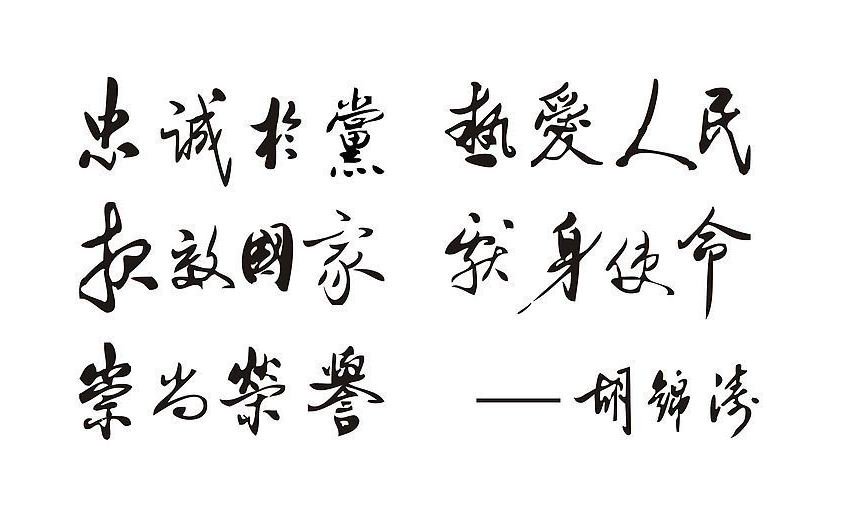 忠诚於黨 熱愛人民
报效國家 献身使命
崇尚榮譽 ——胡錦濤